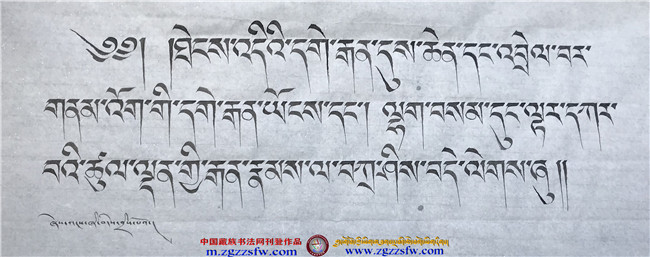 ༄༅། །ཐེངས་འདིའི་དགེ་རྒན་དུས་ཆེན་དང་འབྲེལ་བར་
གནམ་འོག་གི་དགེ་རྒན་ཡོངས་དང་། ལྷག་བསམ་དུང་ལྟར་དཀར་
བའི་ཚུལ་ལྡན་གྱི་རྒན་རྣམས་ལ་བཀྲ་ཤིས་བདེ་ལེགས་ཞུ །།
中国藏族书法网刊登作品
m.zgzzsfw.com
www.zgzzsfw.com